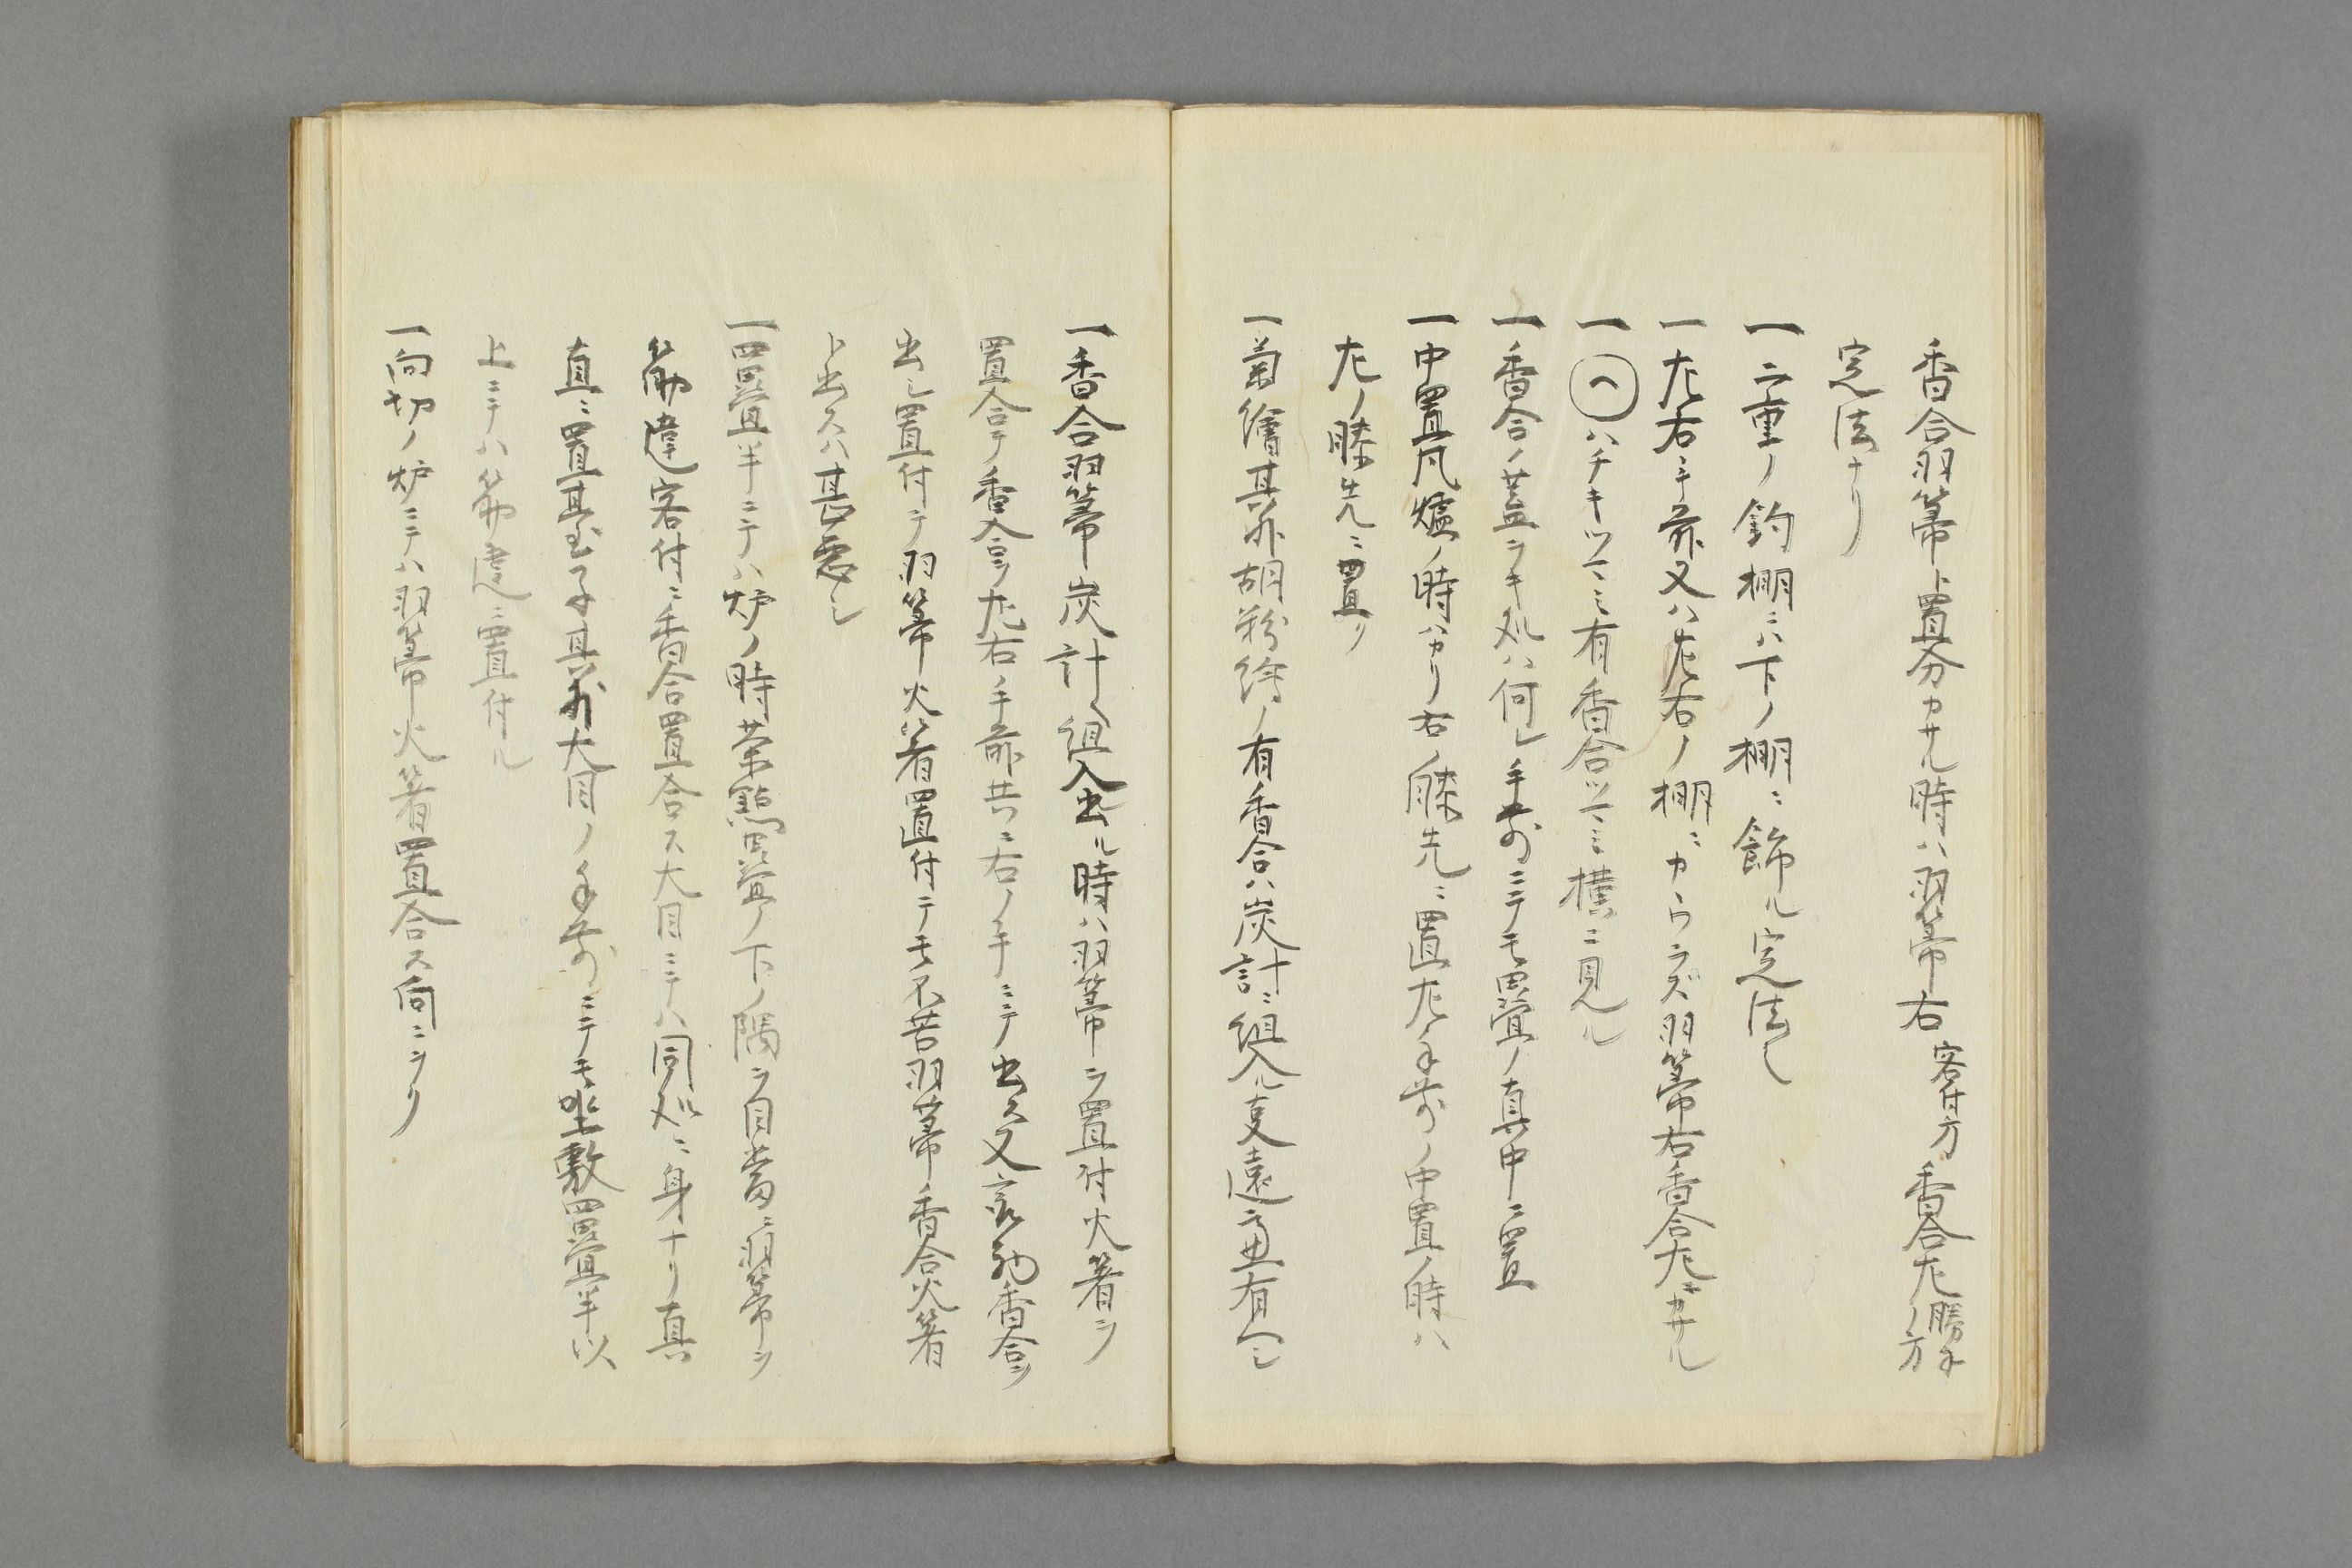 香合羽箒ト置分カサル時ハ羽箒右客付方香合左勝手ノ方
定法ナリ
一二重ノ釣棚ニハ下ノ棚ニ飾ル定法也
一左右手前又ハ左右ノ棚ニカヽワラズ羽箒右香合左ニカサル
一ハチキツマミ有香合ツマミ横ニ見ル
一香合ノ蓋ヲキ処ハ何レ手前ニテモ畳ノ真中ニ置
一中置風爐ノ時ハカリ右ノ膝先ニ置左手前ノ中置ノ時ハ
左ノ膝先ニ置リ
一蒔繪其外胡粉繪ノ有香合ハ炭計ニ組入ル支遠慮有ヘシ
一香合羽箒炭計ヘ組入出ル時ハ羽箒ヲ置付火箸ヲ
置合テ香合ヲ左右手前共ニ右ノ手ニテ出ス又
香合ヲ
出シ置付テ羽箒火箸置付テモ不苦羽箒香合火箸
ト出スハ甚悪シ
一四畳半ニテハ炉ノ時茶點畳ノ下ノ隅ヲ目當ニ羽箒ヲ
筋違客付ニ香合置合ス大目ニテハ同処ニ身ナリ真
直ニ置甚玉子其外大目ノ手前ニテモ坐敷四畳半以
上ニテハ筋違ニ置付ル
一向切ノ炉ニテハ羽箒火箸置合ス向ニシリ